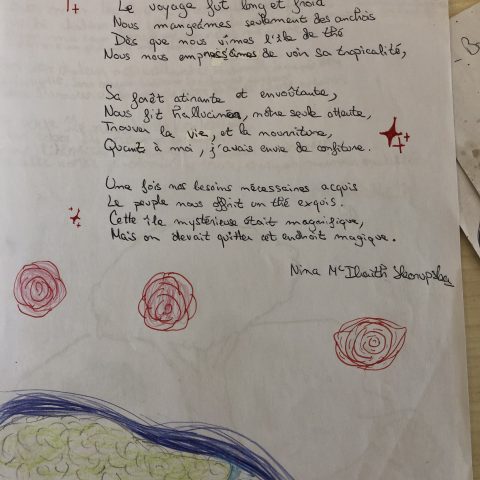 Le voyage fut long et froid
Nous mangeâmes seulement des anchois
Dès que nous vîmes l'île de thé
Nous nous empressâmes de voir sa tropicalité,
Sa forêt attirante et envoûtante,
Nous fit halluciner, nôtre seule attente,
Trouver la vie, et la nourriture,
Quant à moi, j'avais envie de confiture.
Une fois nos besoins nécessaires acquis
Le peuple nous offrit un thé exquis.
Cette île mystérieuse était magnifique,
Mais on devait quitter cet endroit magique.
Nina